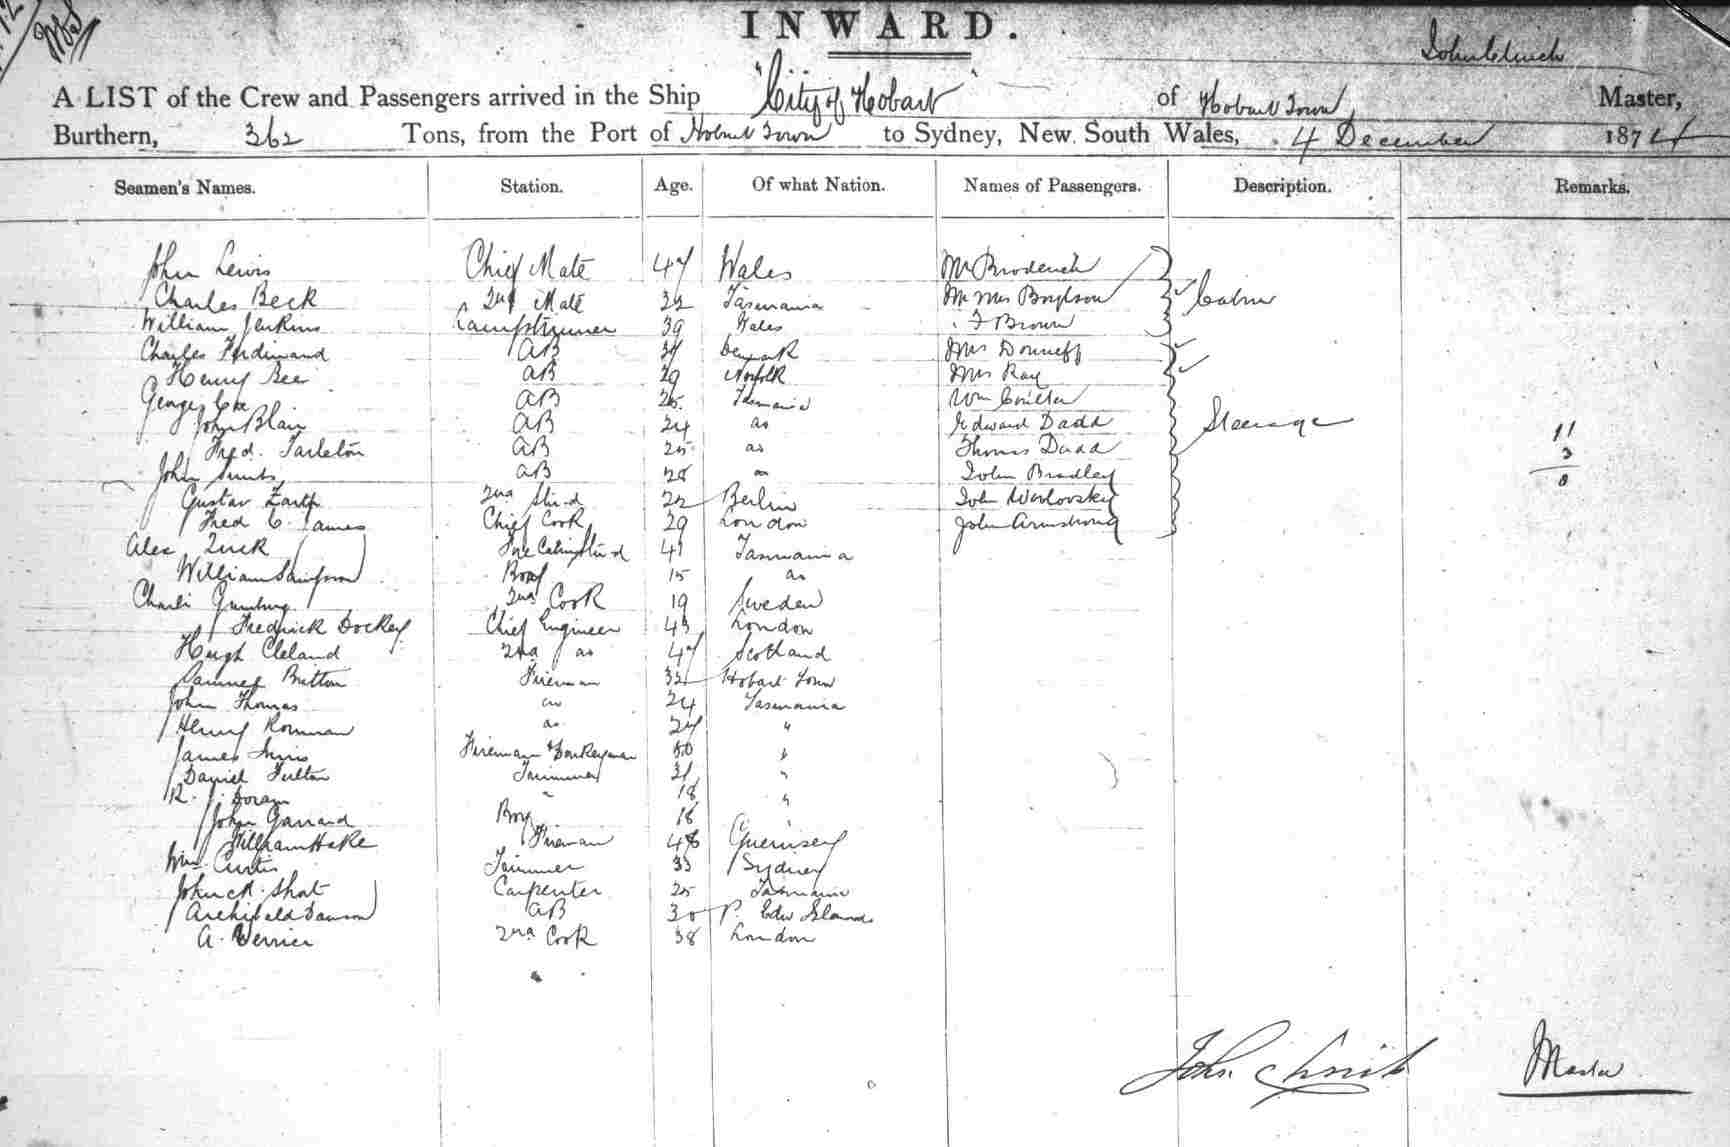 INWARD.
John Clinch
A LIST of the Crew and Passengers arrived in the Ship "City of Hobart" of Hobart Town Master,
Burthern, 362 Tons, from the Port of Hobart Town to Sydney, New South Wales, 4 December 1874
Seamen's Names. Station. Age. Of what Nation. Names of Passengers. Description. Remarks.
John Lewis Chief Mate 47 Wales Mr Broderick
Charles Beck 2nd Mate 32 Tasmania Mr Mrs Cabin
William Jenkins Lamptrimmer 39 Wales F Brown
Charles Ferdinand AB Denmark Mrs
Henry Bee AB 29 Norfolk Mrs Ray
George Cox AB 25 Tasmania Wm Coulter
John Blair AB 24 do Edward Dadd Steerage 11
Fred. Tarleton AB 25 do Thomas Dadd 3
John AB 28 John Bradley 8
Gustav 2nd Stwd 22 Berlin John Warlovsky
Fred C. James Chief Cook 29 London John Armstrong
Alex Fore Cabin Stwd 41 Tasmania
William Sampson Boy 15 do
Charli 2nd Cook 19 Sweden
Fredrick Dockey Chief Engineer 43 London
Hugh Cleland 2nd do 47 Scotland
Samuel Britton Fireman 32 Hobart Town
John Thomas do 24 Tasmania
Henry do 24 "
James Fireman & Donkeyman 50 "
Daniel Fulton Trimmer "
R. J. Doran " 18 "
John Garrard Boy 18
William Hake Fireman 48 Guernsey
Wm Curtis Trimmer 33 Sydney
John Short Carpenter 25 Tasmania
Archibald Dawson AB 30 P. Edw Island
A. 2nd Cook 38 London
John Clinch Master